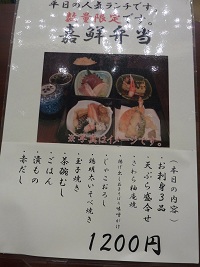 平日の人気ランチです。
数量限定です。
嘉鮮弁当
写真はイメージです。
(本日の内容)
・お刺身3品
・天ぷら盛合せ
・さわら柚庵焼
・じゃこおろし
・鶏明太いそべ焼き
・玉子焼き
・茶碗むし
・ごはん
・漬もの
・赤だし
1200円